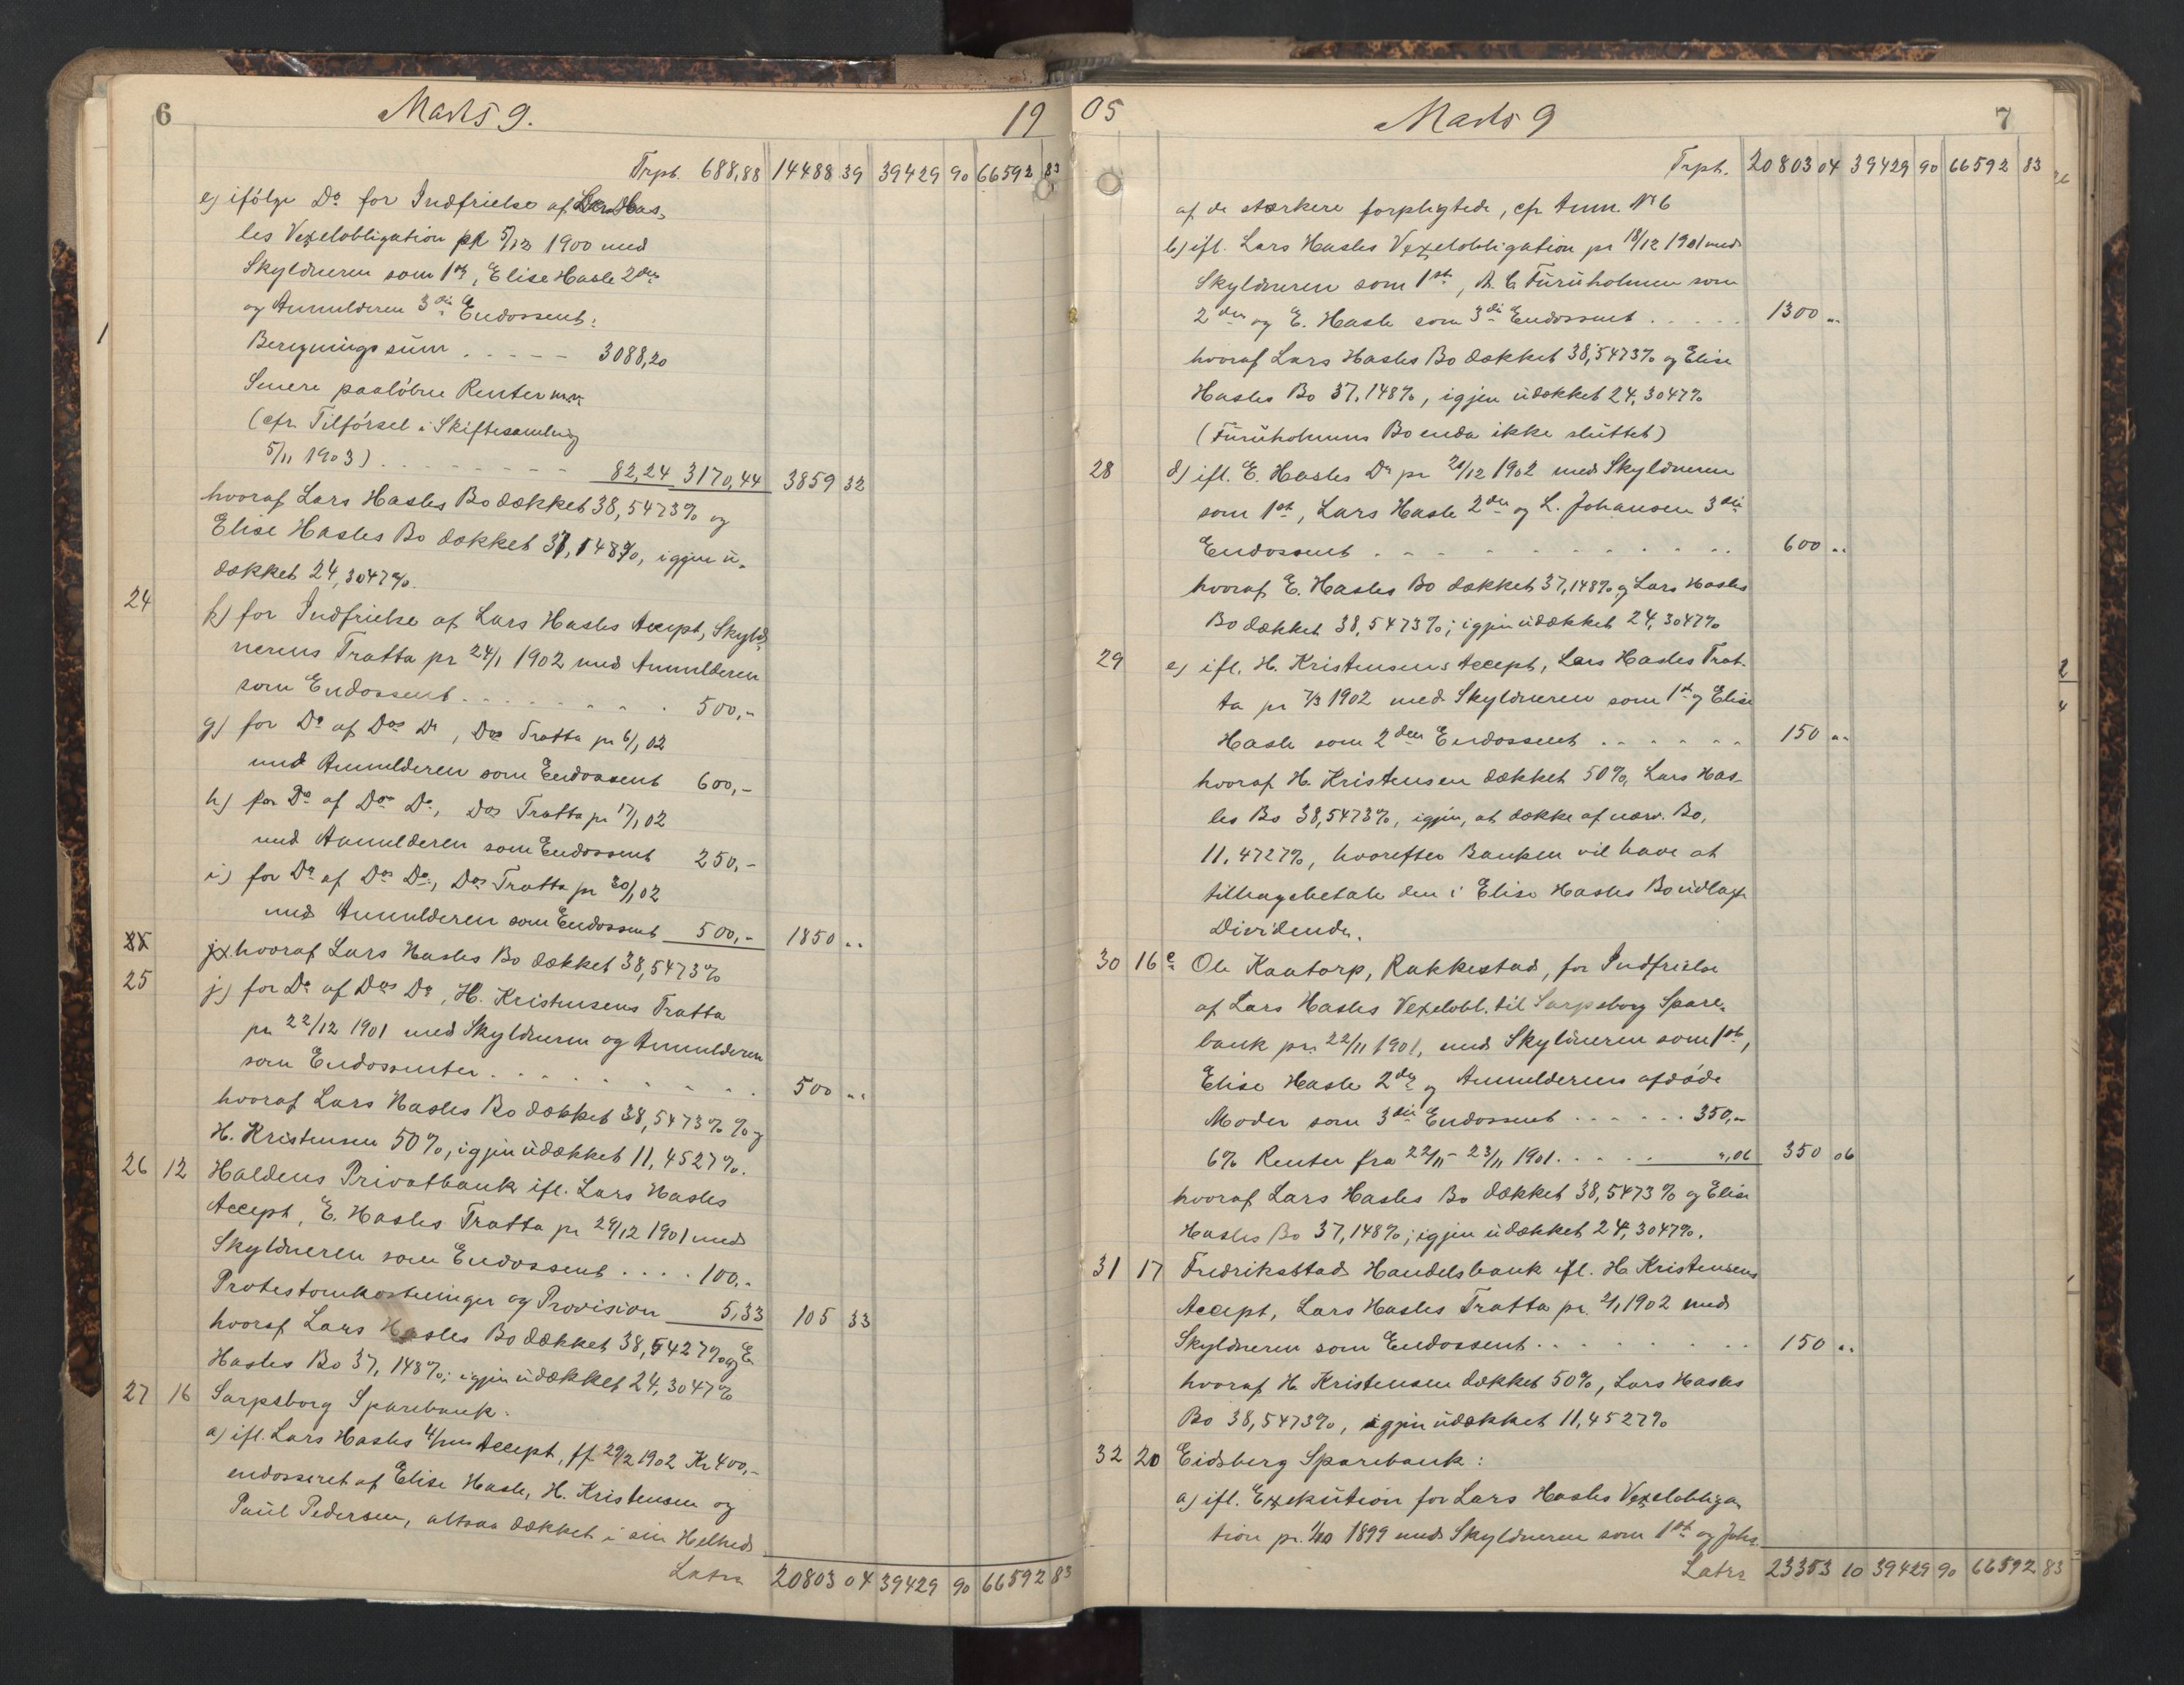 6 Marts 9. 19
Trpt. 688,88 14488 39 39429 90 66592 83
e) ifölge Do for Indfrielse af Lars Has-
les Vexelobligation pr 5/12 1900 med
Skyldneren som 1st, Elise Hasle 2den
og Anmelderen 3die Endossent:
Beregningssum . . . . . 3088,20
Senere paalöbne Renter m.v.
(cfr. Tilförsel i Skiftesamling
5/11 1903) . . . . . . . . 82,24 3170,44 3859 32
hvoraf Lars Hasles Bo dækket 38,5473% og
Elise Hasles Bo dækket 37,148%, igjen u-
dækket 24,3047%.
24 f) for Indfrielse af Lars Hasles Accept, Skyld-
nerens Tratta pr 24/1 1902 med Anmelderen
som Endossent . . . . . . . 500,-
g) for Do af Dos Do, Dos Tratta pr 6/1 02
med Anmelderen som Endossent 600,-
h) for Do af Dos Do, Dos Tratta pr 17/1 02
med Anmelderen som Endossent 250,-
i) for Do af Dos Do, Dos Tratta pr 30/1 02
med Anmelderen som Endossent 500,- 1850 ..
25 j) hvoraf Lars Hasles Bo dækket 38,5473%
25 j) for Do af Dos Do, H. Kristensens Tratta
pr 22/12 1901 med Skyldneren og Anmelderen
som Endossenter . . . . . . . . 500 ..
hvoraf Lars Hasles Bo dækket 38,5473% % og
H. Kristensen 50%, igjen udækket 11,4527%.
26 12 Haldens Privatbank ifl. Lars Hasles
Accept, E. Hasles Tratta pr 29/12 1901 med
Skyldneren som Endossent . . . . 100.-
Protestomkostninger og Provision 5,33 105 33
hvoraf Lars Hasles Bo dækket 38,5427% og E.
Hasles Bo 37,148%; igjen udækket 24,3047%
27 16 Sarpsborg Sparebank:
a) ifl. Lars Hasles 4/mns Accept, ff 29/2 1902 Kr 400,-
endosseret af Elise Hasle, H. Kristensen og
Paul Pedersen, altsaa dækket i sin Helhed
Latus 20803 04 39429 90 66592 83
05 Marts 9 7
Trpt. 20803 04 39429 90 66592 83
af de stærkere forpligtede, cfr Anm. No 6
b) ifl. Lars Hasles Vexelobligation pr 18/12 1901 med
Skyldneren som 1st, A. C. Furuholmen som
2den og E. Hasle som 3die Endossent . . . . . 1300 ..
hvoraf Lars Hasles Bo dækket 38,5473% og Elise
Hasles Bo 37.148%, igjen udækket 24,3047%
(Furuholmens Bo enda ikke sluttet)
28 d) ifl. E. Hasles Do pr 20/12 1902 med Skyldneren
som 1st, Lars Hasle 2den og L. Johansen 3die
Endossent . . . . . . . . . . 600 ..
hvoraf E. Hasles Bo dækket 37,148% og Lars Hasles
Bo dækket 38,5473%; igjen udækket 24,3047%
29 e) ifl. H. Kristensens Accept, Lars Hasles Trat-
ta pr 7/3 1902 med Skyldneren som 1st og Elise
Hasle som 2den Endossent . . . . . . 150 ..
hvoraf H. Kristensen dækket 50%, Lars Has-
les Bo 38,5473%, igjen, at dække af nærv. Bo,
11,4727%, hvorefter Banken vil have at
tilbagebetale den i Elise Hasles Bo udlagte
Dividende.
30 16e Ole Kaatorp, Rakkestad, for Indfrielse
af Lars Hasles Vexelobl. til Sarpsborg Spare-
bank pr. 22/11 1901, med Skyldneren som 1st,
Elise Hasle 2den og Anmelderens afdöde
Moder som 3die Endossent . . . . . . 350,-
6% Renter fra 22/11 - 23/11 1901 . . . . . ",06 350 06
hvoraf Lars Hasles Bo dækket 38,5473% og Elise
Hasles Bo 37,148%; igjen udækket 24,3047%.
31 17 Fredriksstads Handelsbank ifl. H. Kristensens
Accept, Lars Hasles Tratta pr. 2/1 1902 med
Skyldneren som Endossent . . . . . . . 150 ..
hvoraf H. Kristensen dækket 50%, Lars Hasles
Bo 38,5473%, igjen udækket 11,4527%
32 20 Eidsberg Sparebank:
a) ifl. Exekution for Lars Hasles Vexelobliga-
tion pr. 1899 med Skyldneren som 1st og Johs.
Latus 23353 10 39429 90 66592 83